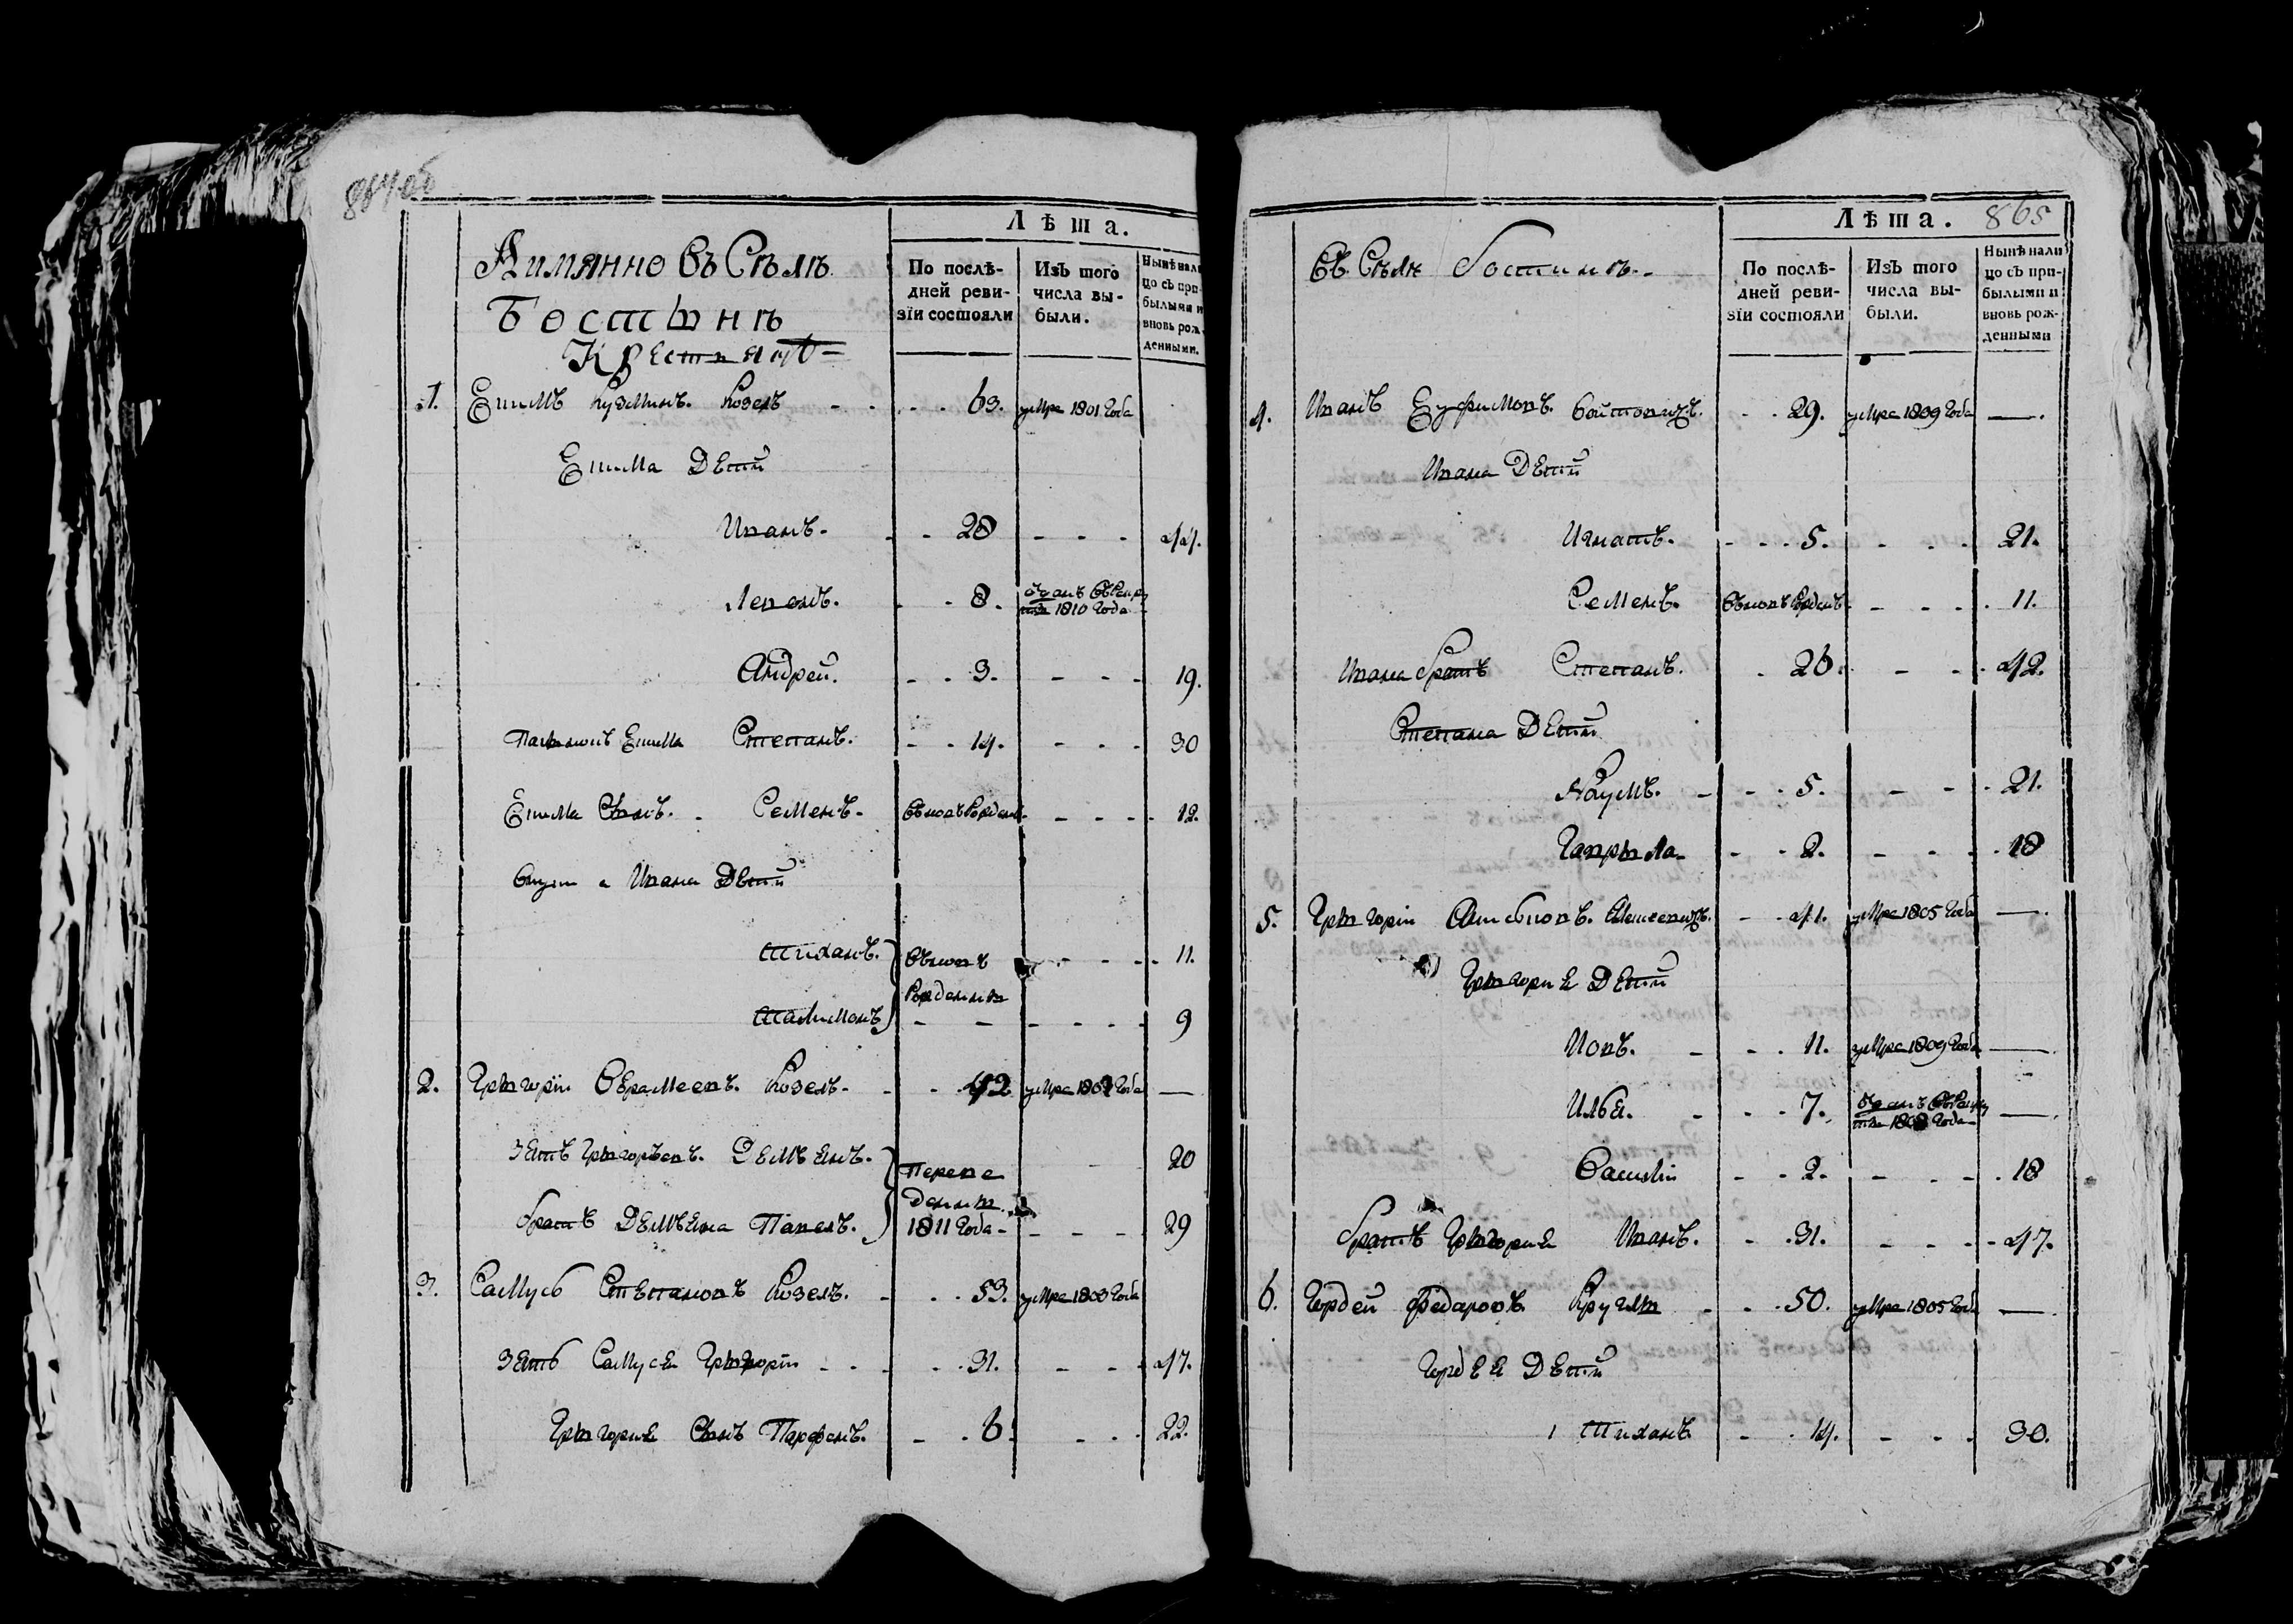 864 об
Лѣта.
По послѣ-
дней реви-
зіи состояли
Изъ того
числа вы-
были.
Нынѣ нали
цо съ при-
былыми и
вновь рож-
денными.
Аимянно въ Селѣ
Бостынѣ
Крестьянъ
1. Еѳимъ Кузминъ Козелъ 63. умре 1801 Года
Еѳима Дети
Иванъ. 28 44.
Левонъ. 8. одданъ въ Рекру
ти 1810 Года
Андрей. 3. 19.
Степанъ. 14. 30
Еѳима Сынъ. Семенъ. Вновь Рожденъ 12.
Ивана Дети
Тиханъ. Вновь 11.
Рождены
9
2. Григорій Козелъ. 42 умре Года —
Зять Григорьевъ. Демьянъ. Переве 20
дены
братъ Демьяна Павелъ. 1811 Года 29
3. Самусь Степановъ Козелъ. 53. умре 1803 Года
Зять Самуся Григорій 31. 47.
Григория Сынъ Парфенъ. 6. 22.
865
Лѣта.
По послѣ-
дней реви-
зіи состояли
Изъ того
числа вы-
были.
Нынѣ нали
цо съ при-
былыми и
вновь рож-
денными
Въ Селѣ Бостынѣ
4. Иванъ Еуфимовъ. Войтовичъ. 29. умре 1809 Года —
Ивана Дети
Игнатъ. 5. 21.
Семенъ. Вновь Рожденъ 11.
Ивана братъ Степанъ. 26. 42.
Степана Дети
Наумъ. 5. 21.
Гаврыла 2. 18
5. Григорій 41. умре 1805 Года —
Григория Дети
Иовъ. 11. умре 1809 Года —
Илья. 7. одданъ въ Рекру —
ти Года
Василій 2. 18
братъ Григория Иванъ. 31. 47.
6. Гордей Федаровъ. Круглы 50. умре 1805 Года —
Гордея Дети
Тиханъ 14. 30.